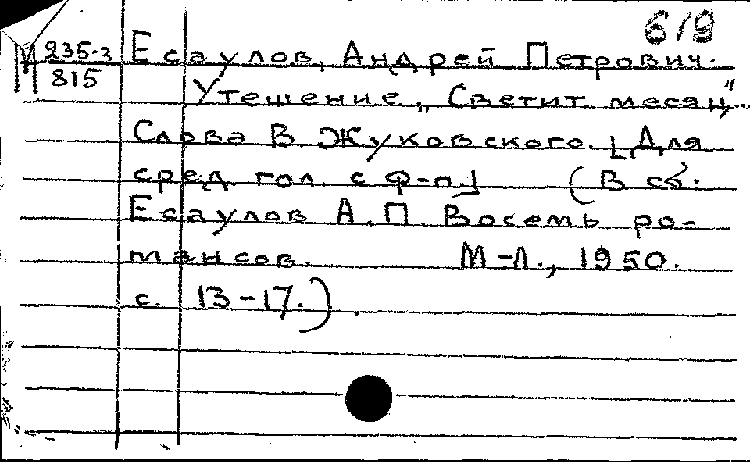 619
П 235-3 Есаулов, Андрей Петрович.
815 Утешение „Светит месяц"...
Слова В Жуковского. [Для
сред гол. с ф-п.] (В сб.
Есаулов А.П Восемь ро-
мансов. М-Л., 1950.
с. 13-17.)